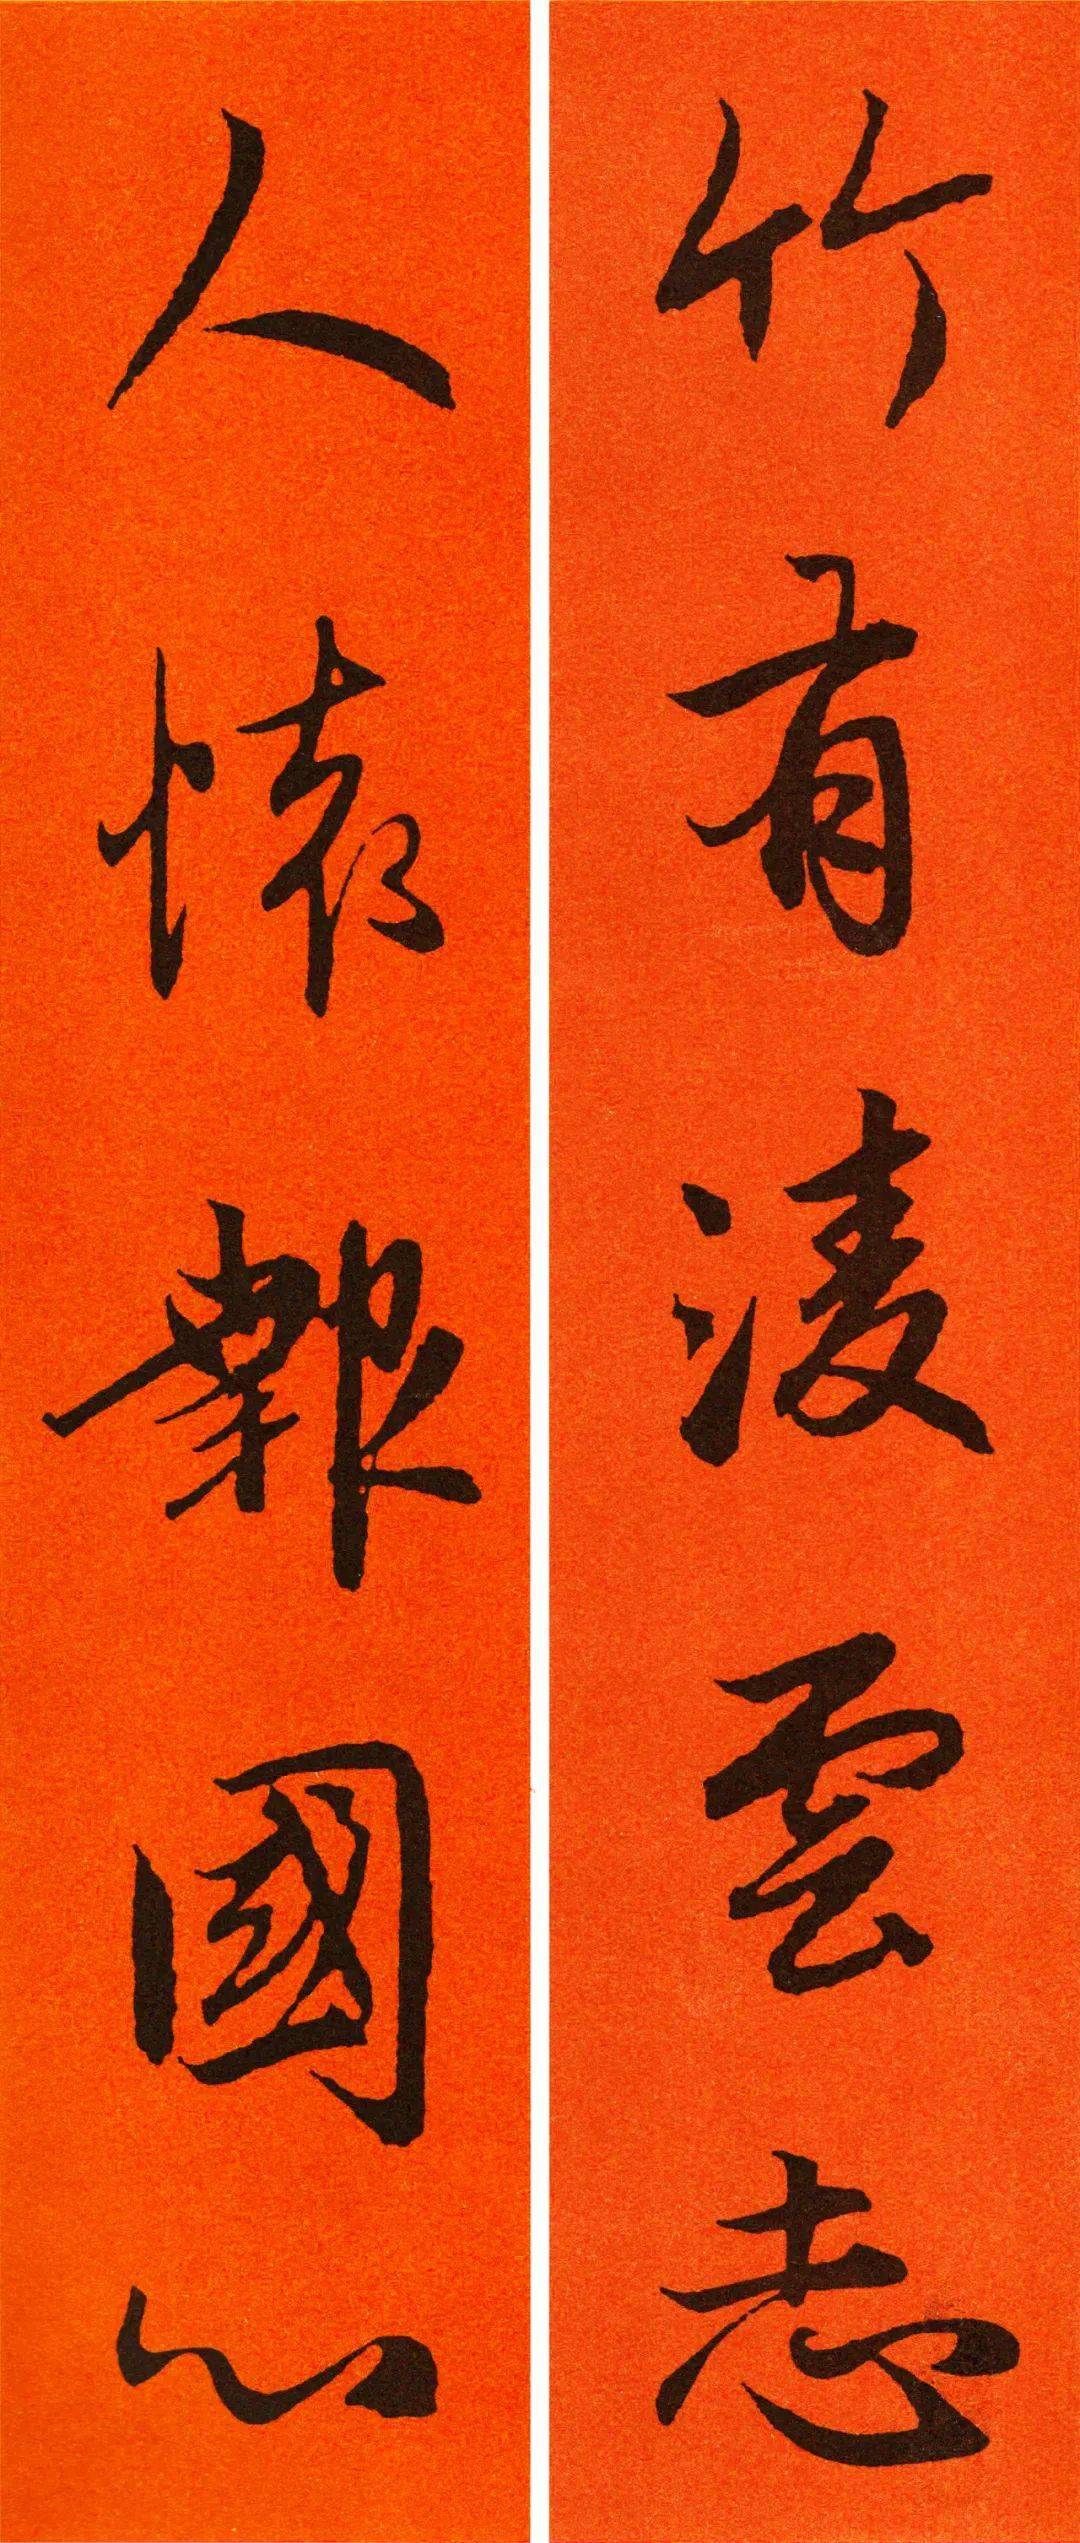 竹有淩雲志
人懐報國心